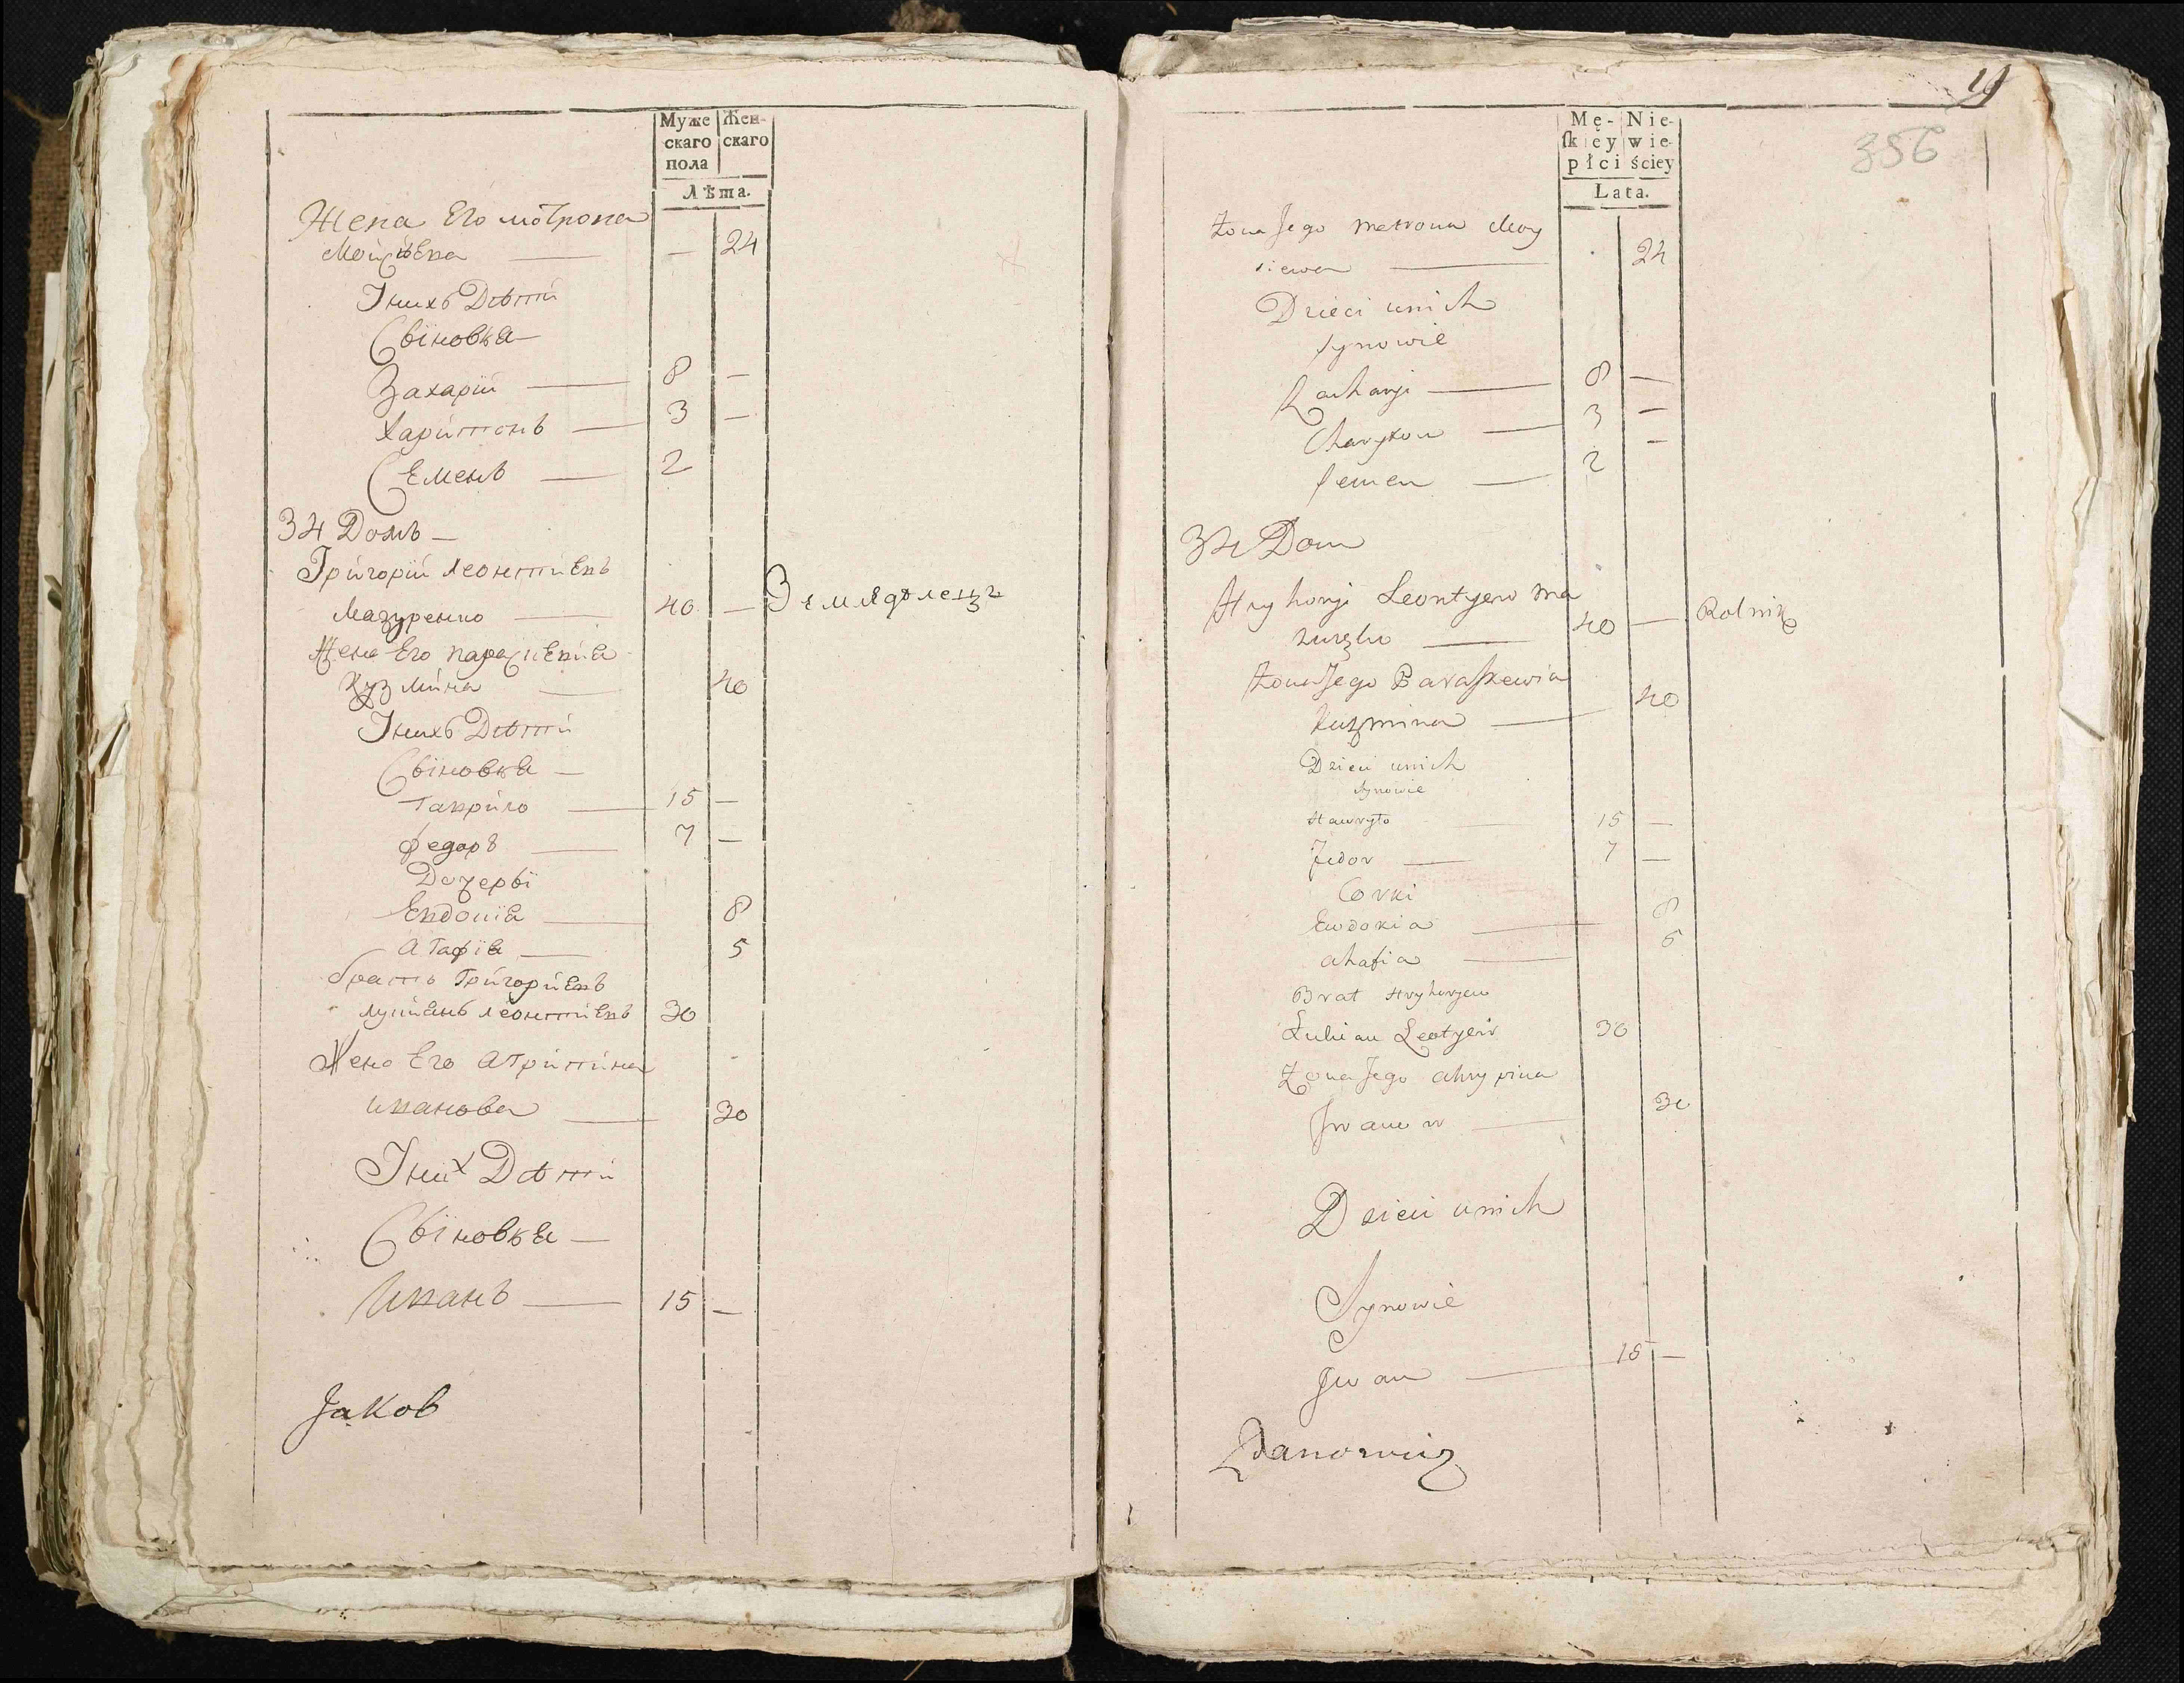 Муже Жен-
скаго скаго
пола
Лѣта.
Жена Его мотрона
Мойсѣева — — 24
Унихъ Дѣтти
Сынов́ья
Захарій — 8 —
Харитонъ — 3 —
Семенъ — 2
34 Домъ —
Григорій Леонтиевъ
Мазуренко — 40 — Землядѣлецъ
Жена Его парасцевия
Кузмина — 40
Унихъ Дѣтти
Сыновья —
Гаврило — 15 —
Федоръ — 7 —
Дочеры
Евдокия — 8
Агафія — 5
братъ Григориевъ
лукианъ леонтиевъ 30
Жена Его Агрипина
иванова — 30
Уних Дѣтти
Сыновья —
Иванъ — 15 —
Jakob
19
356
Mę- Nie-
ſkiey wie-
płci ściey
Lata.
Żona Jego Metrona Moy
siewa — 24
Dzieci unich
Synowie
Zacharyi — 8 —
Charyton — 3 —
Semen — 2 —
34 Dom
Hryhoryi Leontyew Ma
zurenko — 40 — Rolnik
Żona Jego Paraſkewia
Kuzmina — 40
Dzieci unich
Synowie
Hawryło — 15 —
Fedor — 7 —
Corki
Ewdokia — 8
Ahafia — 5
Brat Hryhoryew
Łukian Leotyew 30
Żona Jego Ahrypina
Iwanow — 30
Dzieci unich
Synowie
Iwan — 15 —
Zdanowicz